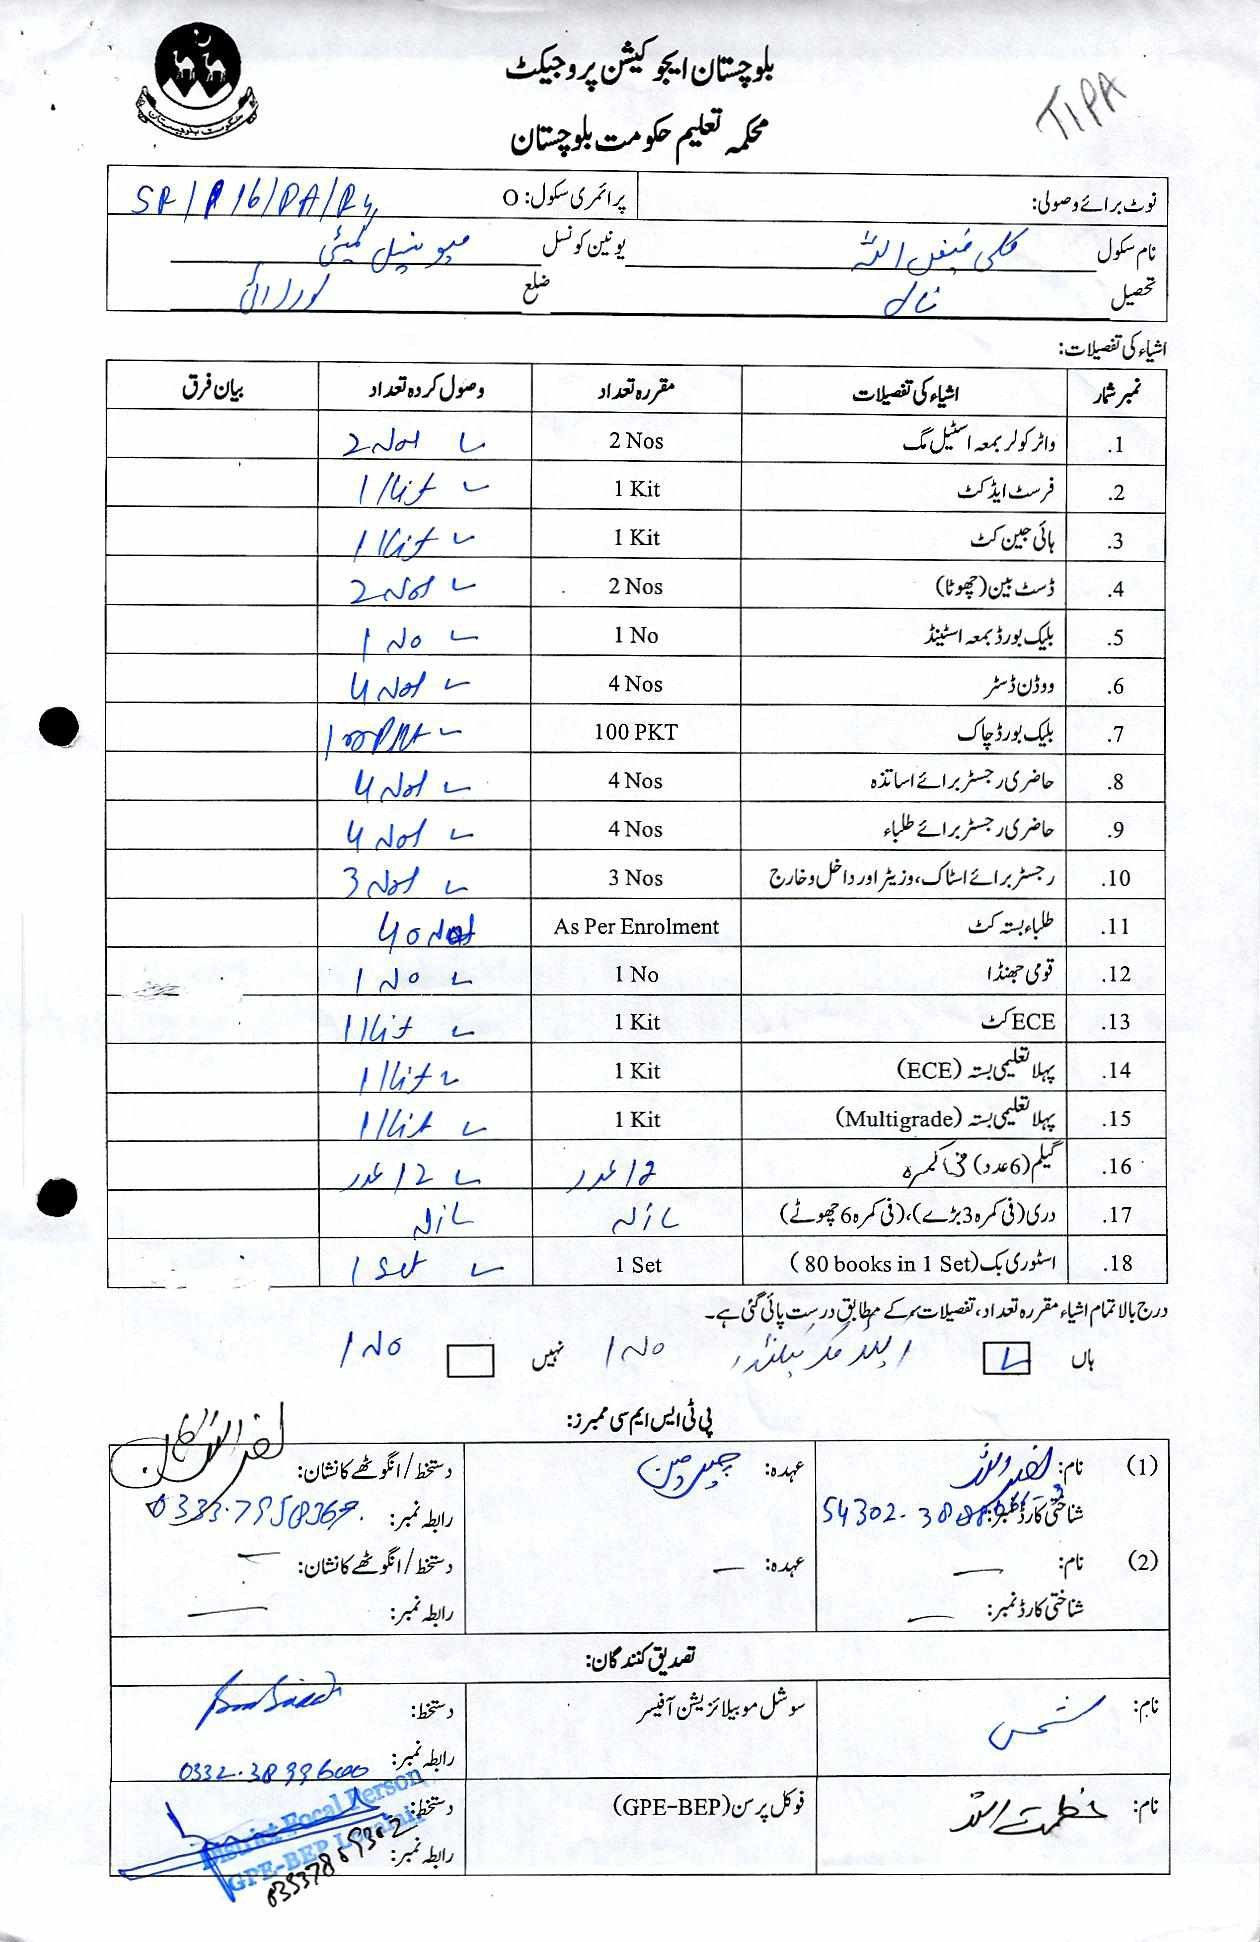 بلوچستان ایجوکیشن پروجیکٹ
محکمہ تعلیم حکومت بلوچستان
TIPA
نوٹ برائے وصولی: پرائمری سکول: O
نام سکول کلی فیض اللہ یونین کونسل میونسپل کمیٹی
تحصیل ضلع لورالائی
اشیاء کی تفصیلات:
نمبر شمار اشیاء کی تفصیلات مقررہ تعداد وصول کردہ تعداد بیان فرق
1. واٹر کولر بمعہ اسٹیل مگ 2 Nos 2 Nos
2. فرسٹ ایڈ کٹ 1 Kit 1 Kit
3. ہائی جین کٹ 1 Kit 1 Kit
4. ڈسٹ بین (چھوٹا) 2 Nos 2 Nos
5. بلیک بورڈ بمعہ اسٹینڈ 1 No 1 No
6. ووڈن ڈسٹر 4 Nos 4 Nos
7. بلیک بورڈ چاک 100 PKT 100 PKT
8. حاضری رجسٹر برائے اساتذہ 4 Nos 4 Nos
9. حاضری رجسٹر برائے طلباء 4 Nos 4 Nos
10. رجسٹر برائے اسٹاک، وزیٹر اور داخل و خارج 3 Nos 3 Nos
11. طلباء بستہ کٹ As Per Enrolment 40 Nos
12. قومی جھنڈا 1 No 1 No
13. ECE کٹ 1 Kit 1 Kit
14. پہلا تعلیمی بستہ (ECE) 1 Kit 1 Kit
15. پہلا تعلیمی بستہ (Multigrade) 1 Kit 1 Kit
16. گیلم (6 عدد) فی کمرہ 12 عدد 12 عدد
17. دری (فی کمرہ 3 بڑے)، (فی کمرہ 6 چھوٹے)
18. اسٹوری بک (80 books in 1 Set) 1 Set 1 Set
درج بالا تمام اشیاء مقررہ تعداد، تفصیلات کے مطابق درست پائی گئی ہے۔
ہاں 1 No نہیں 1 No
پی ٹی ایس ایم سی ممبرز:
(1) نام: عہدہ: چیئرمین دستخط/انگوٹھے کا نشان:
شناختی کارڈ نمبر: رابطہ نمبر:
(2) نام: — عہدہ: — دستخط/انگوٹھے کا نشان: —
شناختی کارڈ نمبر: — رابطہ نمبر: —
تصدیق کنندگان:
نام: شمس سوشل موبیلائزیشن آفیسر دستخط:
رابطہ نمبر: 0332-3899600
نام: عظمت اللہ فوکل پرسن (GPE-BEP) دستخط:
رابطہ نمبر:
District Focal Person
GPE-BEP Loralai